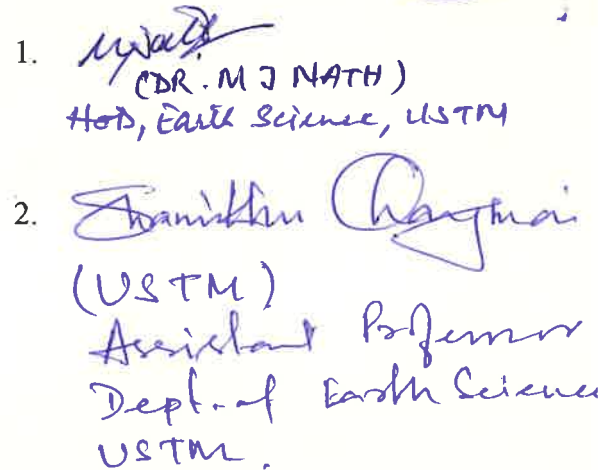 1.
(DR. M J NATH)
HoD, Earth Science, USTM
2.
(USTM)
Assistant Professor
Dept. of Earth Science
USTM.